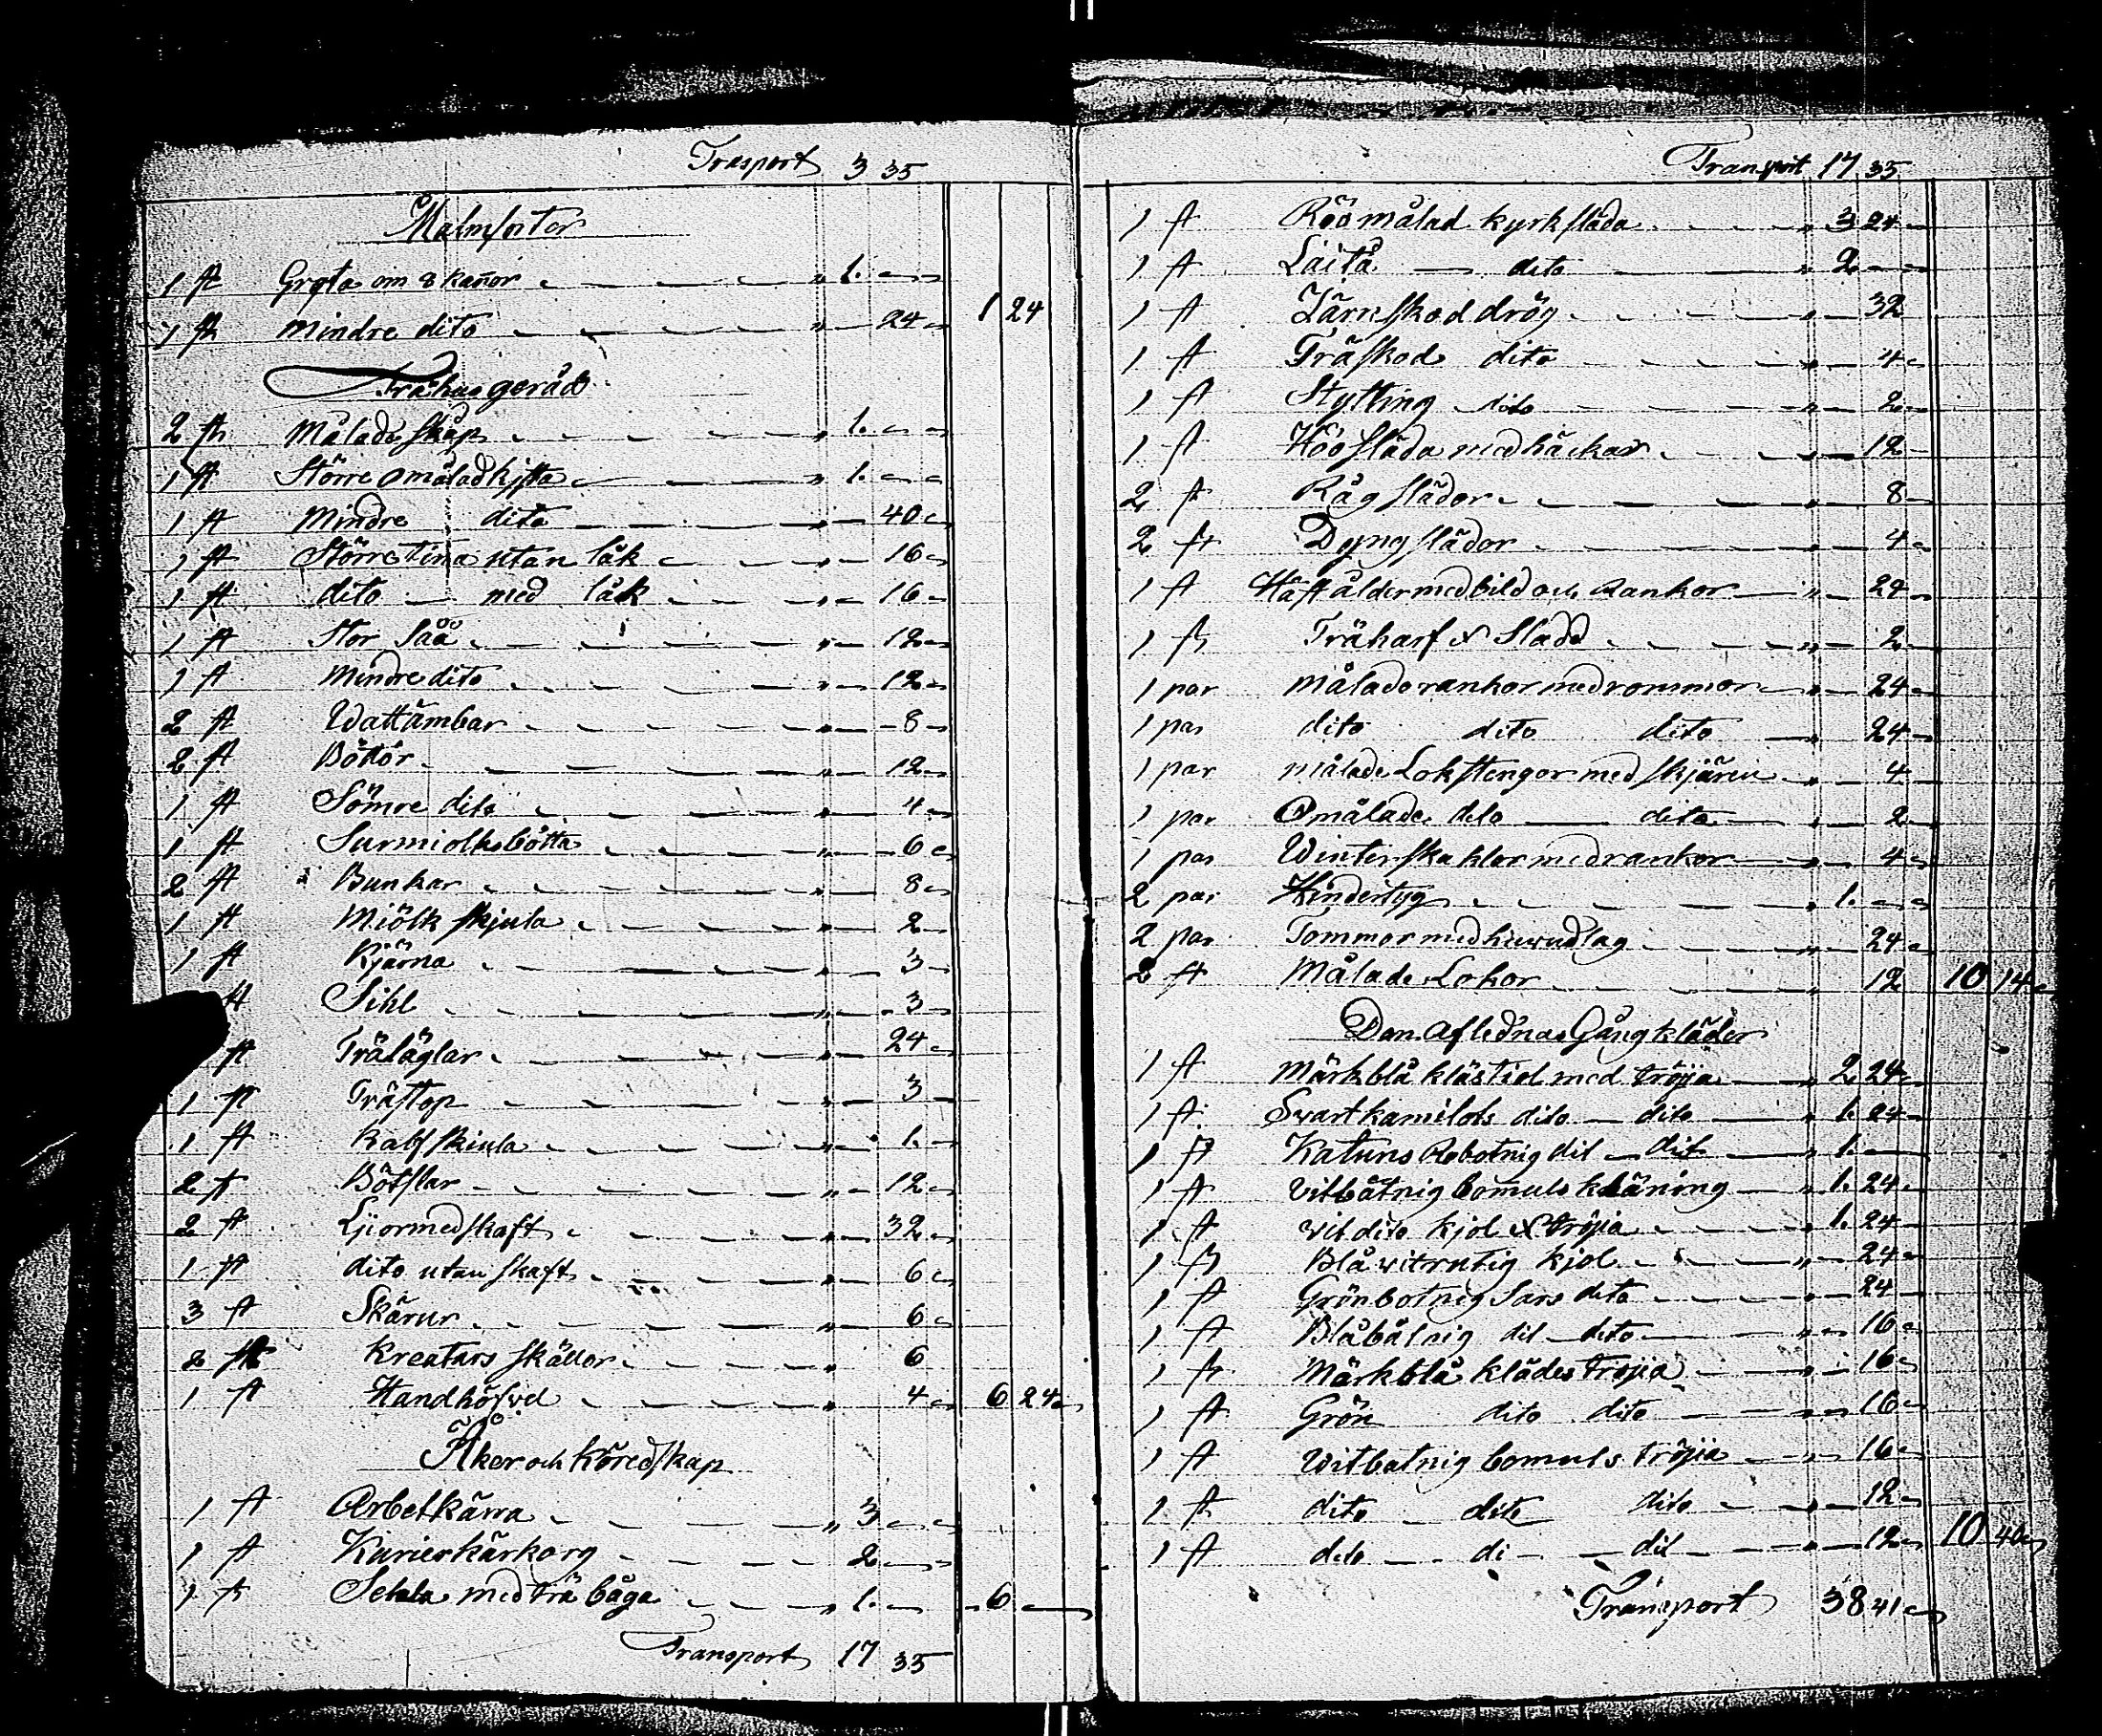 Trasport 3 35
Malmsorter
1 st Gryta om 8 kañor „ 1. —
1 st mindre dito „ 24 1 24
Trähusgeråd
2 st Målade skåp „ 1. —
1 st Större omålad kista „ 1. —
1 st Mindre dito „ 40
1 st Större tina utan låk „ 16
1 st dito med låk „ 16
1 st Stor såå „ 12
1 st Mindre dito „ 12
2 st Wattämbar „ 8
2 st Böttor „ 12
1 st Sömre dito „ 4
1 st Surmiolksbötta „ 6
2 st Bunkar „ 8
1 st Miölk skjula „ 2
1 st Kjärna „ 3
st Sihl „ 3
st Träläglar „ 24
1 st Trästop „ 3
1 st Kalfskiula „ 1.
2 st Bötslar „ 12
2 st Ljior med skaft „ 32
1 st dito utan skaft „ 6
3 st Skärur „ 6
2 st Kreaturs skällor „ 6
1 st Hand 4 6 24
Åker och Köredskap
1 st Arbetkärra „ 3 —
1 st Kurierkärkorg 2 —
1 st med trä båga „ 1. — 6 —
Transport 17 35
Transport 17 35
1 st Röd målad kyrksläda „ 3 24
1 st dito „ 2 —
1 st Järnskod drög „ 32
1 st Träskod dito „ 4
1 st Stytting dito „ 2
1 st Hösläda med häckar „ 12
2 st Råg slädor „ 8
2 st Dyng slädor „ 4
1 st med bild och Rankor „ 24
1 st Träharf & Sladd „ 2
1 par målade rankor med rommor „ 24
1 par dito dito dito „ 24
1 par målade Lokstengor med „ 4
1 par Omålade dito dito „ 2
1 par Winterskaklar med rankor „ 4
2 par Hindertyg „ 1. —
2 par Tommor med huwudlag „ 24
2 st Målade Lokor „ 12 10 14
Den Aflednas Gångkläder
1 st Märkblå med tröjja „ 2 24
1 st Svart kamilots dito — dito „ 1. 24
1 st Katuns dit — dit „ 1. —
1 st Vitbåtnig bomuls kläning „ 1. 24
1 st vit dito kjol & tröjia „ 1. 24
1 st Blå vitrutig kjol „ 24
1 st Grönbotnig Sars dito 24
1 st Blåbåtnig dit — dito „ 16
1 st Märkblå klädes tröjia „ 16
1 st Grön dito dito „ 16
1 st Witbatnig bomuls tröjia „ 16
1 st dito dito dito „ 12
1 st dito — di — dit „ 12 10 40
Transport 38 41